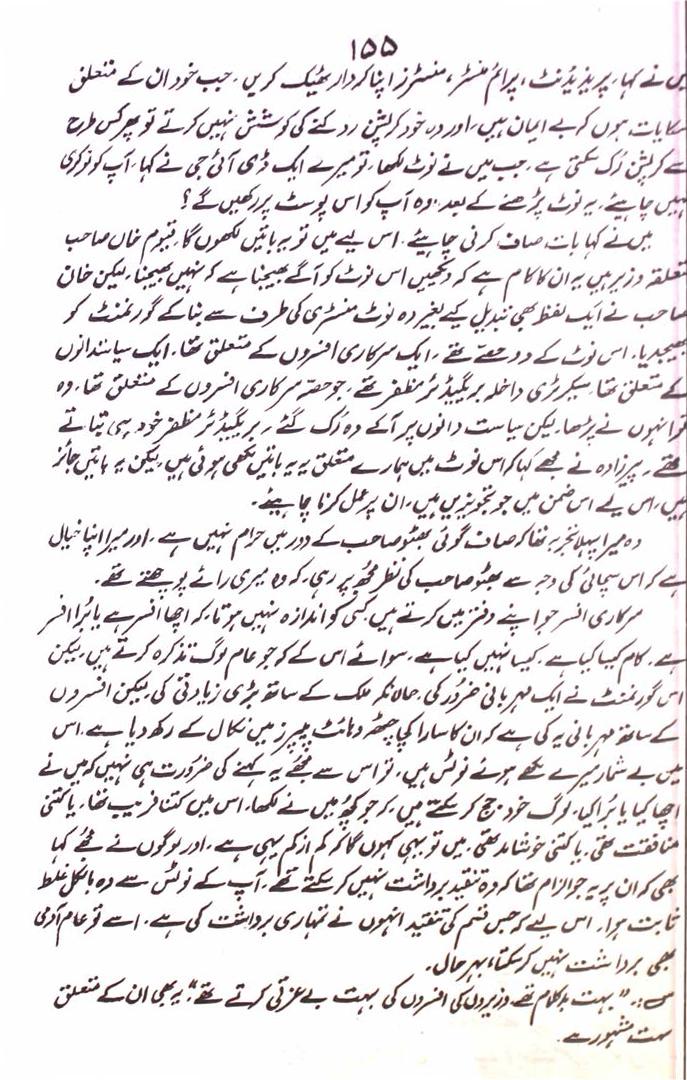 ۱۵۵
میں نے کہا، پریذیڈنٹ، پرائم منسٹر، منسٹرز اپنا کردار ٹھیک کریں۔ جب خود ان کے متعلق
شکایات ہوں کہ بے ایمان ہیں، اور وہ خود کرپشن روکنے کی کوشش نہیں کرتے تو پھر کس طرح
سے کرپشن رُک سکتی ہے، جب میں نے نوٹ لکھا، تو میرے ایک ڈی آئی جی نے کہا، آپ کو نوکری
نہیں چاہیئے۔ یہ نوٹ پڑھنے کے بعد وہ آپ کو اس پوسٹ پر رکھیں گے؟
میں نے کہا بات صاف کرنی چاہیئے۔ اس لیے میں تو یہ باتیں لکھوں گا، قیوم خان صاحب
متعلقہ وزیر ہیں یہ ان کا کام ہے کہ دیکھیں اس نوٹ کو آگے بھیجنا ہے کہ نہیں بھیجنا، لیکن خان
صاحب نے ایک لفظ بھی تبدیل کیے بغیر وہ نوٹ منسٹری کی طرف سے بنا کے گورنمنٹ کو
بھیجدیا۔ اس نوٹ کے دو حصے تھے، ایک سرکاری افسروں کے متعلق تھا، ایک سیاستدانوں
کے متعلق تھا، سیکرٹری داخلہ بریگیڈئر مظفر تھے، جو حصہ سرکاری افسروں کے متعلق تھا، وہ
تو انہوں نے پڑھا، لیکن سیاست دانوں پر آکے وہ رُک گئے، بریگیڈئر مظفر خود ہی بتاتے
تھے۔ پیرزادہ نے مجھے کہا کہ اس نوٹ میں ہمارے متعلق یہ یہ باتیں لکھی ہوئی ہیں، لیکن یہ باتیں جائز
ہیں، اس لیے اس ضمن میں جو تجویزیں ہیں، ان پر عمل کرنا چاہیئے۔
وہ میرا پہلا تجربہ تھا کہ صاف گوئی بھٹو صاحب کے دور میں حرام نہیں ہے، اور میرا اپنا خیال
ہے کہ اس سچائی کی وجہ سے بھٹو صاحب کی نظر مجھ پر رہی، کہ وہ میری رائے پوچھتے تھے۔
سرکاری افسر جو اپنے دفتر میں کرتے ہیں، کسی کو اندازہ نہیں ہوتا، کہ اچھا افسر ہے یا بُرا افسر
ہے۔ کام کیسا کیا ہے۔ کیسا نہیں کیا ہے۔ سوائے اس کے کہ جو عام لوگ تذکرہ کرتے ہیں، لیکن
اس گورنمنٹ نے ایک مہربانی ضرور کی، حالانکہ ملک کے ساتھ بڑی زیادتی کی، لیکن افسروں
کے ساتھ مہربانی یہ کی ہے کہ ان کا سارا کچا چٹھہ وہائٹ پیپرز میں نکال کے رکھ دیا ہے، اس
میں بے شمار میرے لکھے ہوئے نوٹس ہیں، تو اس سے مجھے یہ کہنے کی ضرورت ہی نہیں کہ میں نے
اچھا کیا یا بُرا کیا، لوگ خود جج کر سکتے ہیں، کہ جو کچھ میں نے لکھا، اس میں کتنا فریب تھا، یا کتنی
منافقت تھی، یا کتنی خوشامد تھی، میں تو یہی کہوں گا کہ کم از کم یہی ہے، اور لوگوں نے مجھے کہا
بھی کہ ان پر یہ جو الزام تھا کہ وہ تنقید برداشت نہیں کر سکتے تھے، آپ کے نوٹس سے وہ بالکل غلط
ثابت ہوا۔ اس لیے کہ جس قسم کی تنقید انہوں نے تمہاری برداشت کی ہے۔ اسے تو عام آدمی
بھی برداشت نہیں کر سکتا، بہرحال۔
س:۔ "بہت بدکلام تھے، وزیروں کی، افسروں کی بہت بے عزتی کرتے تھے؟" یہ بھی ان کے متعلق
بہت مشہور ہے۔